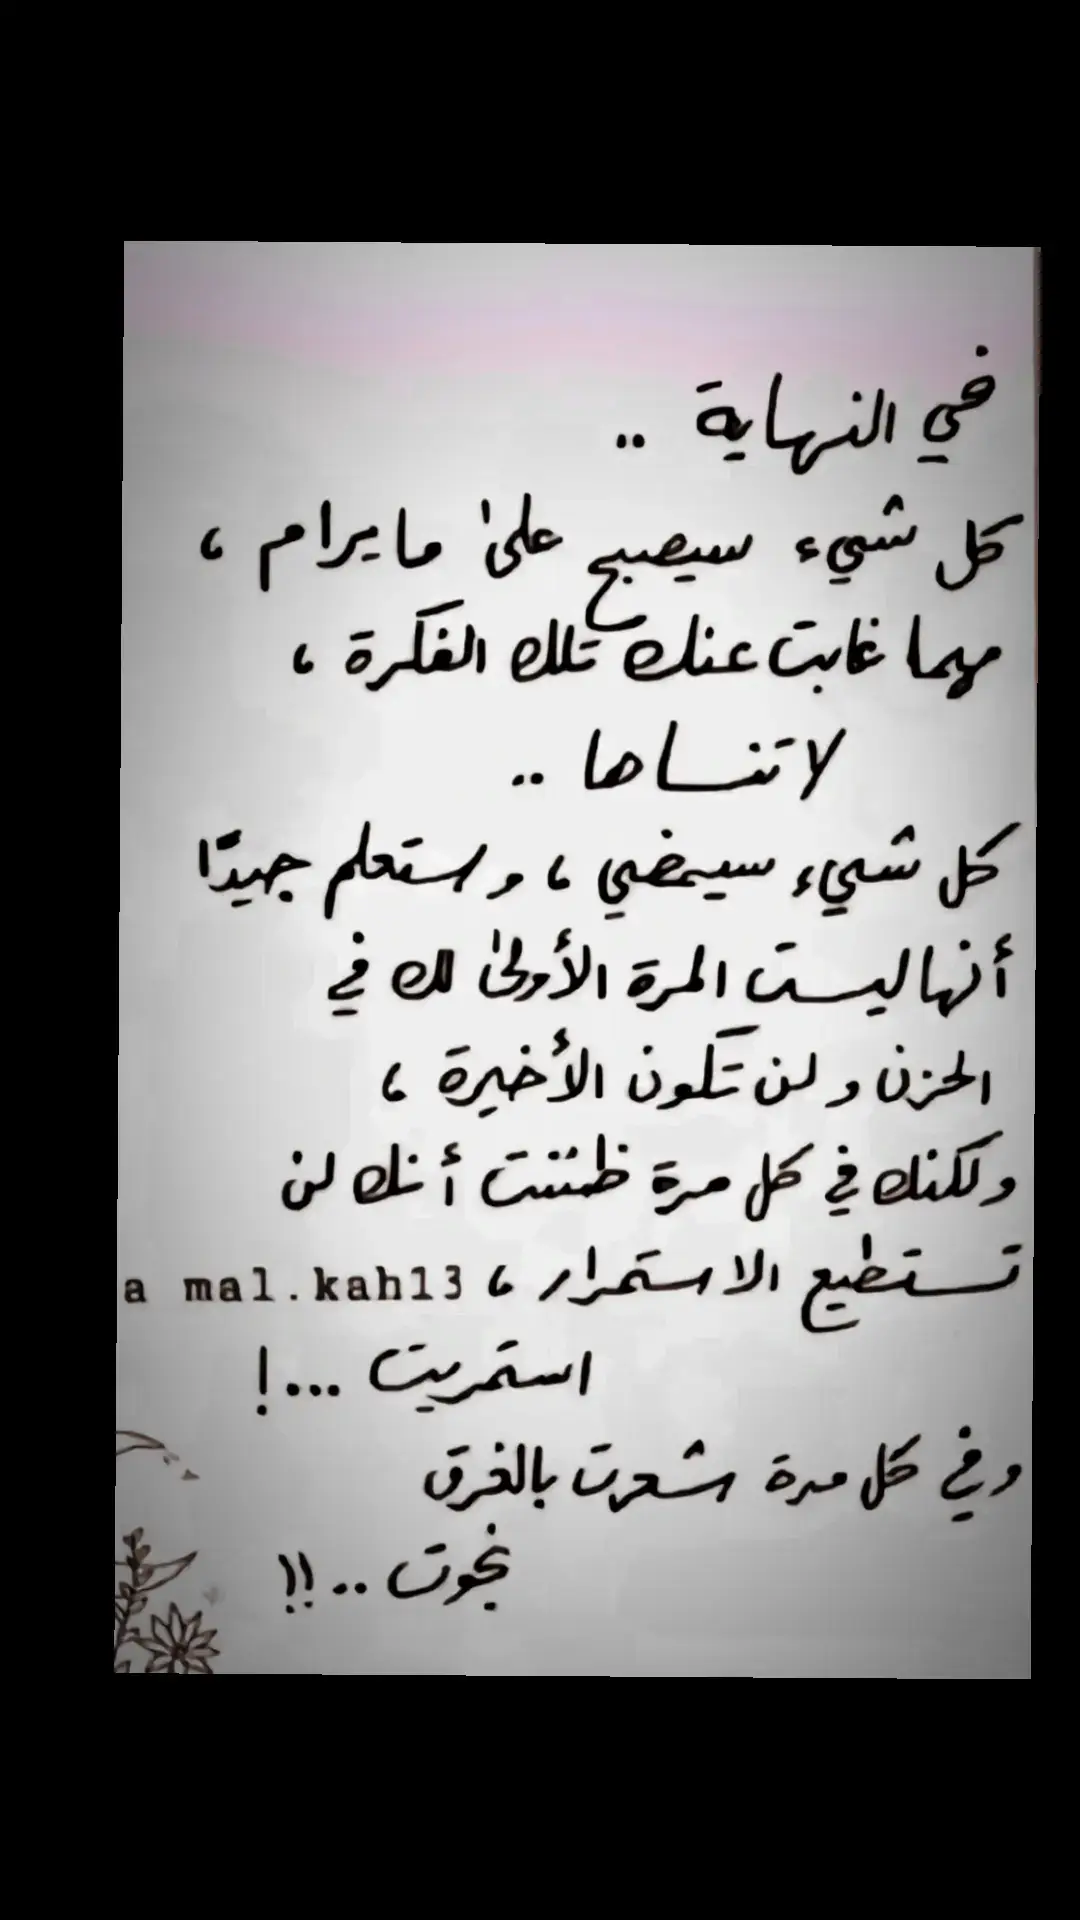 في النهاية ..
كل شيء سيصبح على ما يرام ،
مهما غابت عنك تلك الفكرة ،
لا تنساها ..
كل شيء سيمضي ، وستعلم جيدًا
أنها ليست المرة الأولى لك في
الحزن ولن تكون الأخيرة ،
ولكنك في كل مرة ظننت أنك لن
تستطيع الاستمرار ، a mal.kah13
استمريت ...!
وفي كل مرة شعرت بالغرق
نجوت ..!!